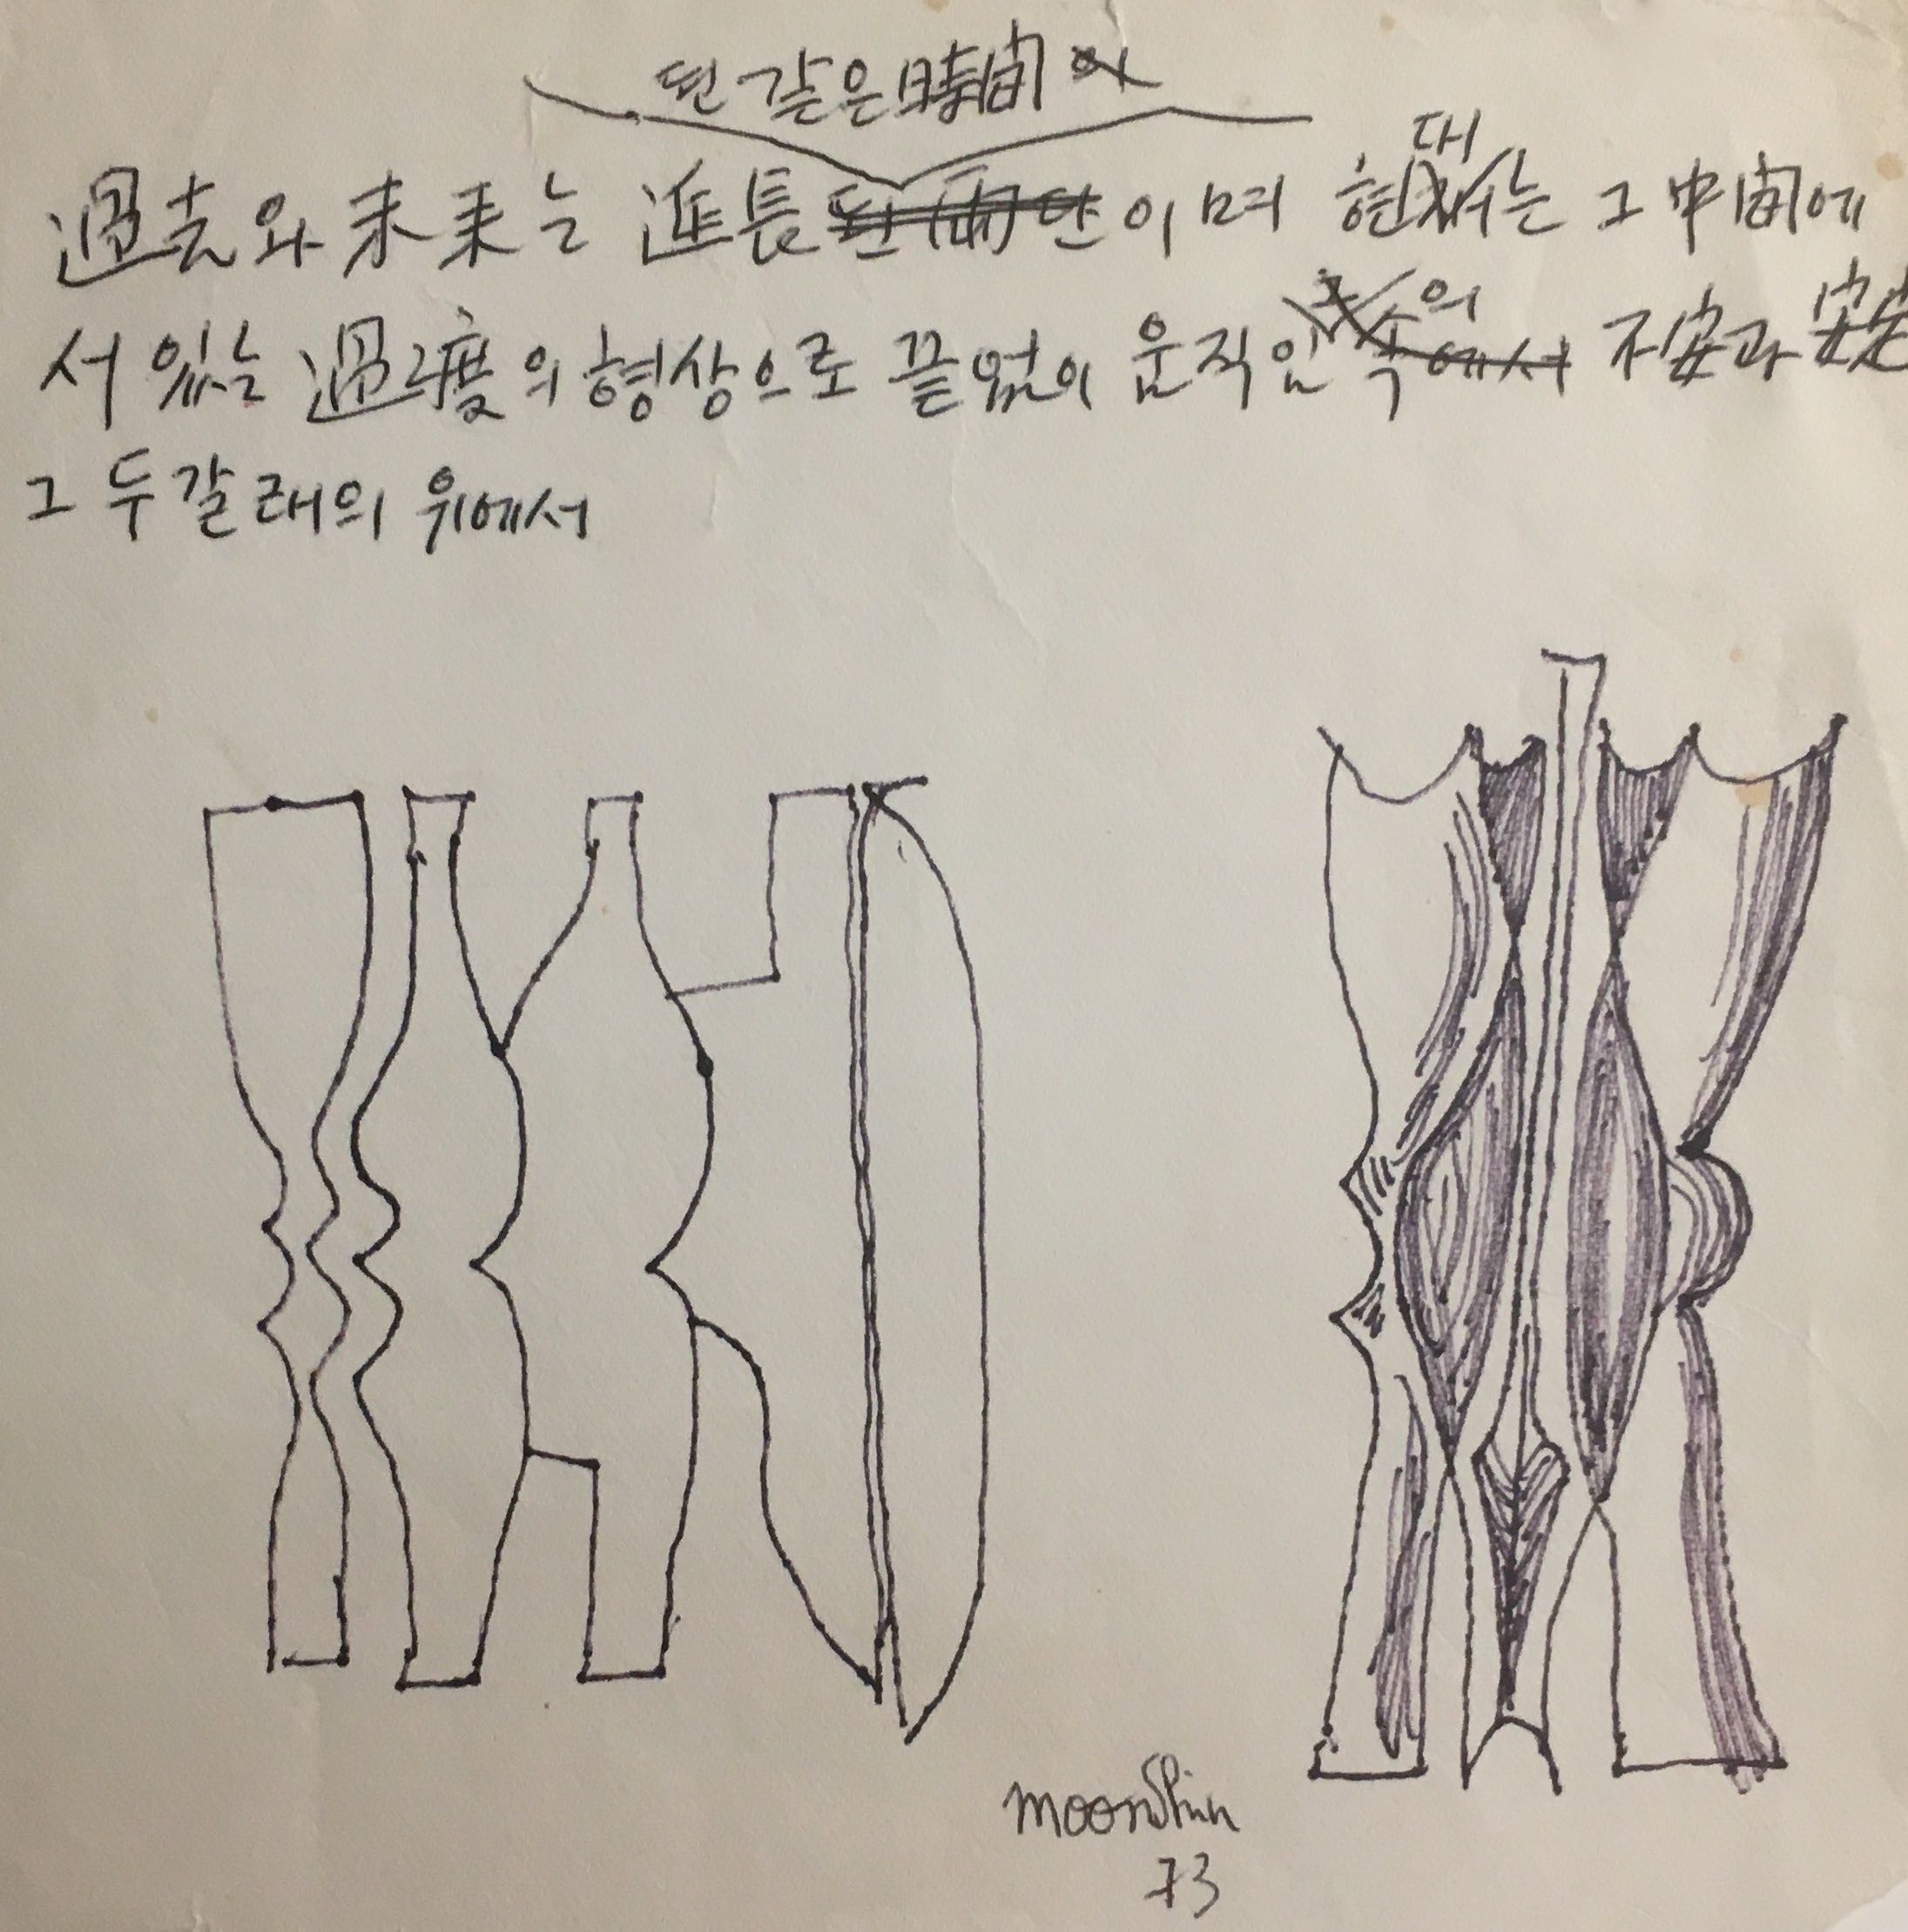 된 같은 時間
過去와 未来는 延長 이며 현대는 그 中間에
서 있는 過渡의 형상으로 끝없이 움직임 속의 不安과 安定
그 두갈래의 위에서
moonshin
73